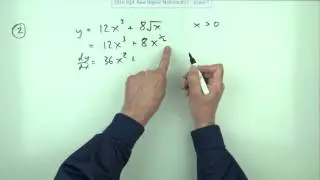 2016 SQA New Higher Mathematics - Paper 1
② y = 12x³ + 8√x x > 0
= 12x³ + 8x^½
dy/dx = 36x² +